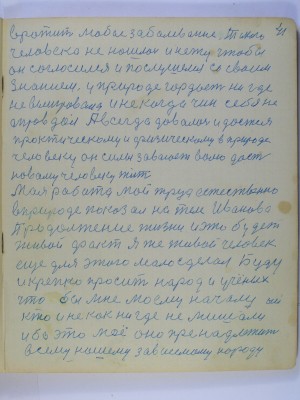 вротит любое заболевание. Такого
человека не нашлось и нету чтобы
он согласился и послушелся со своем
знанием. и природе гордость ни где
не и некогда чин себя не
оправдал А всегда довался и дается
практическому и физическому в природе
человеку он силы завоюет воно даст
новому человеку жить
Моя работа мой труд естественно
в природе показал на теле Иванова
Продолжение жизни и это будет
живой факт Я же живой человек
еще для этого мало сделал Буду
и крепко просить народ и ученых
что бы мне моему началу
кто и не как ни где не мешали
ибо это моё оно пренадлежит
всему нашему зависимому народу